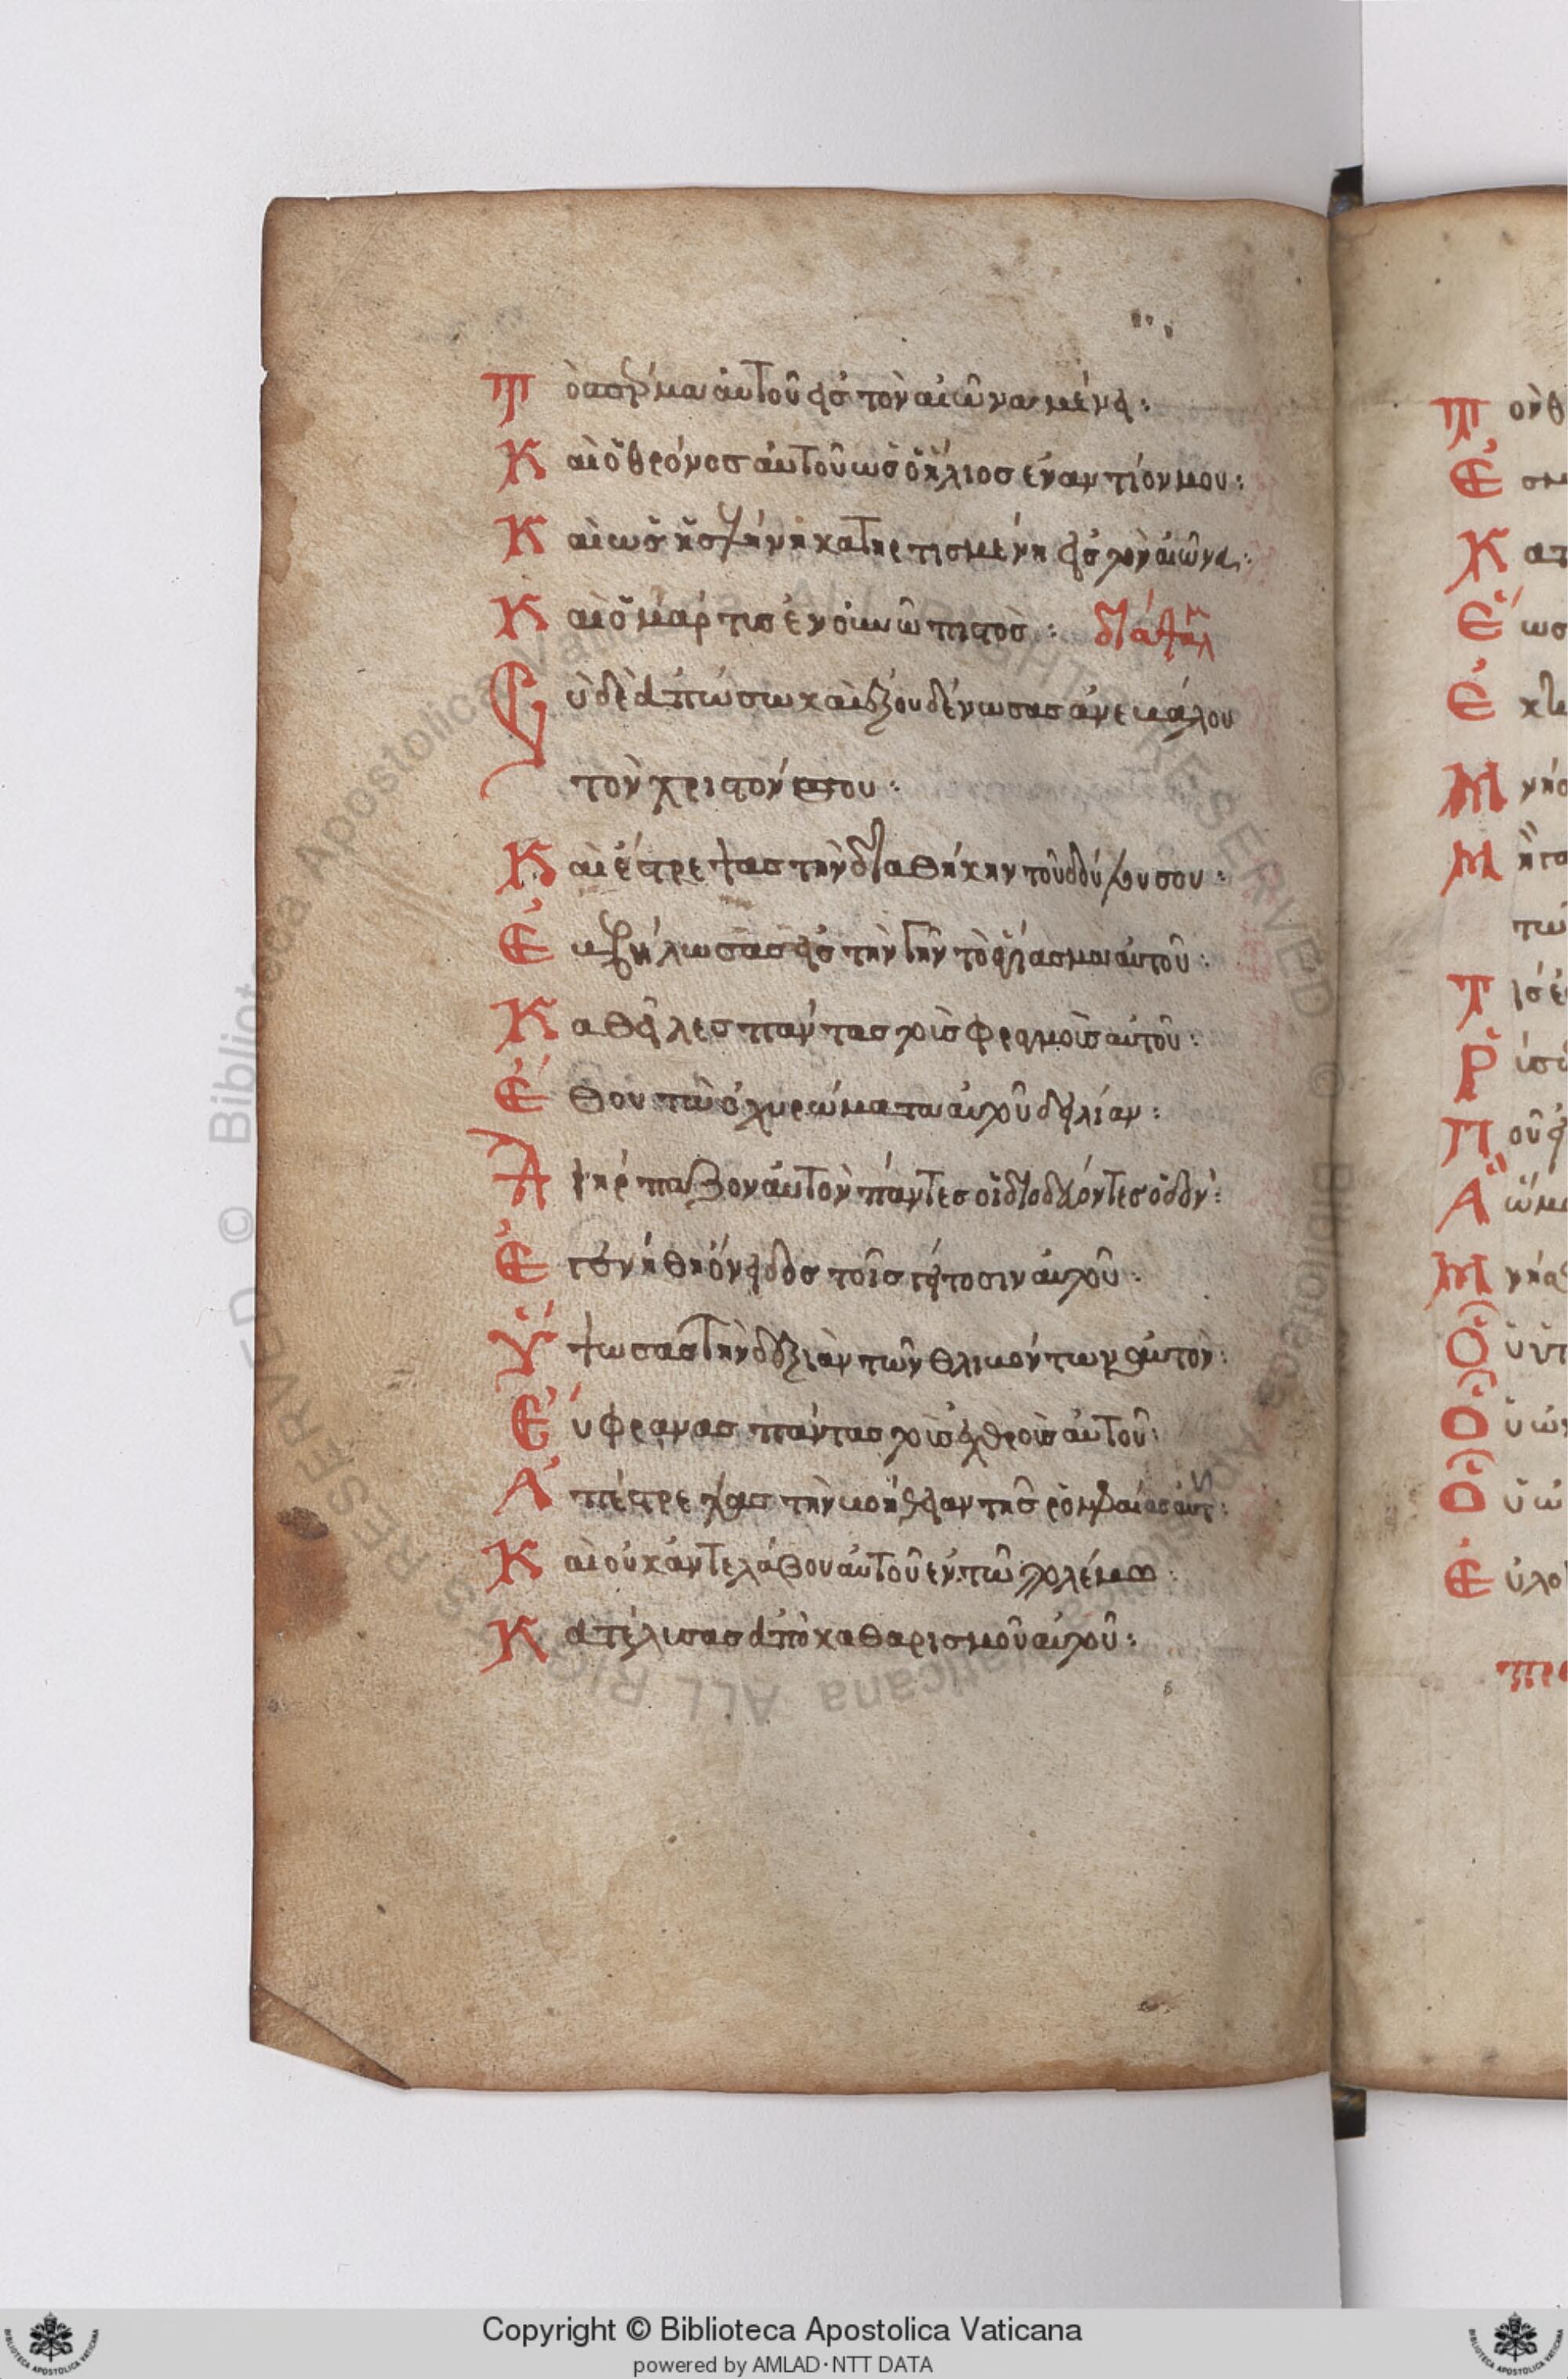 Τὸ σπέρμα αὐτοῦ εἰς τὸν αἰῶνα μένει:
Καὶ ὁ θρόνος αὐτοῦ ὡς ὁ ἥλιος ἐναντίον μου:
Καὶ ὡς ἡ σελήνη κατηρτισμένη εἰς τὸν αἰῶνα:
Καὶ ὁ μάρτις ἐν οὐνῶ πιστὸς: διάψαλ
Σὺ δὲ ἀπώσω καὶ ἐξουδένωσας ἀνεβάλου
τὸν χριστόν σου:
Καὶ έστρεψας τὴν διαθήκην τοῦ δούλου σου:
Ἐβεβήλωσας εἰς τὴν γῆν τὸ ἁγίασμα αὐτοῦ:
Καθεῖλες πάντας τοὺς φραγμοὺς αὐτοῦ:
Ἔθου τὰ ὀχυρώματα αὐτοῦ δειλίαν:
Διήρπαζον αὐτὸν πάντες οἱ διοδεύοντες ὁδόν:
Ἐγενήθη ὄνειδος τοῖς γείτοσιν αὐτοῦ:
Ὕψωσας τὴν δεξιὰν τῶν θλιβόντων αὐτὸν:
Εύφρανας πάντας τοὺς ἐχθροὺς αὐτοῦ:
Ἀπέστρεψας τὴν βοήθειαν τῆς ῥομφαίας αὐτ:
Καὶ οὐκ ἀντελάβου αὐτοῦ ἐν τῶ πολέμω:
Κατέλυσας ἀπὸ καθαρισμοῦ αὐτοῦ:
Copyright © Biblioteca Apostolica Vaticana
powered by AMLAD·NTT DATA